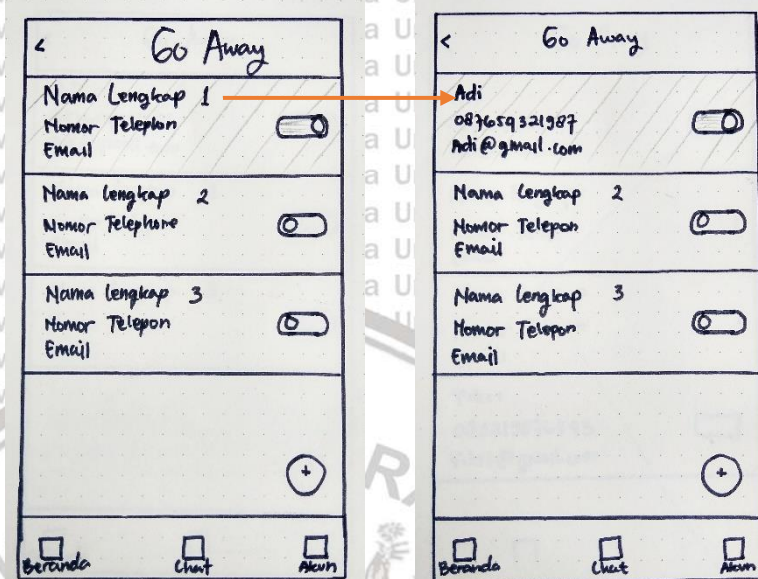 < Go Away
Nama Lengkap 1
Nomor Telephon
Email
Nama Lengkap 2
Nomor Telephone
Email
Nama Lengkap 3
Nomor Telepon
Email
+
Beranda Chat Akun
< Go Away
Adi
087659321987
Adi@gmail.com
Nama Lengkap 2
Nomor Telepon
Email
Nama Lengkap 3
Nomor Telepon
Email
+
Beranda Chat Akun